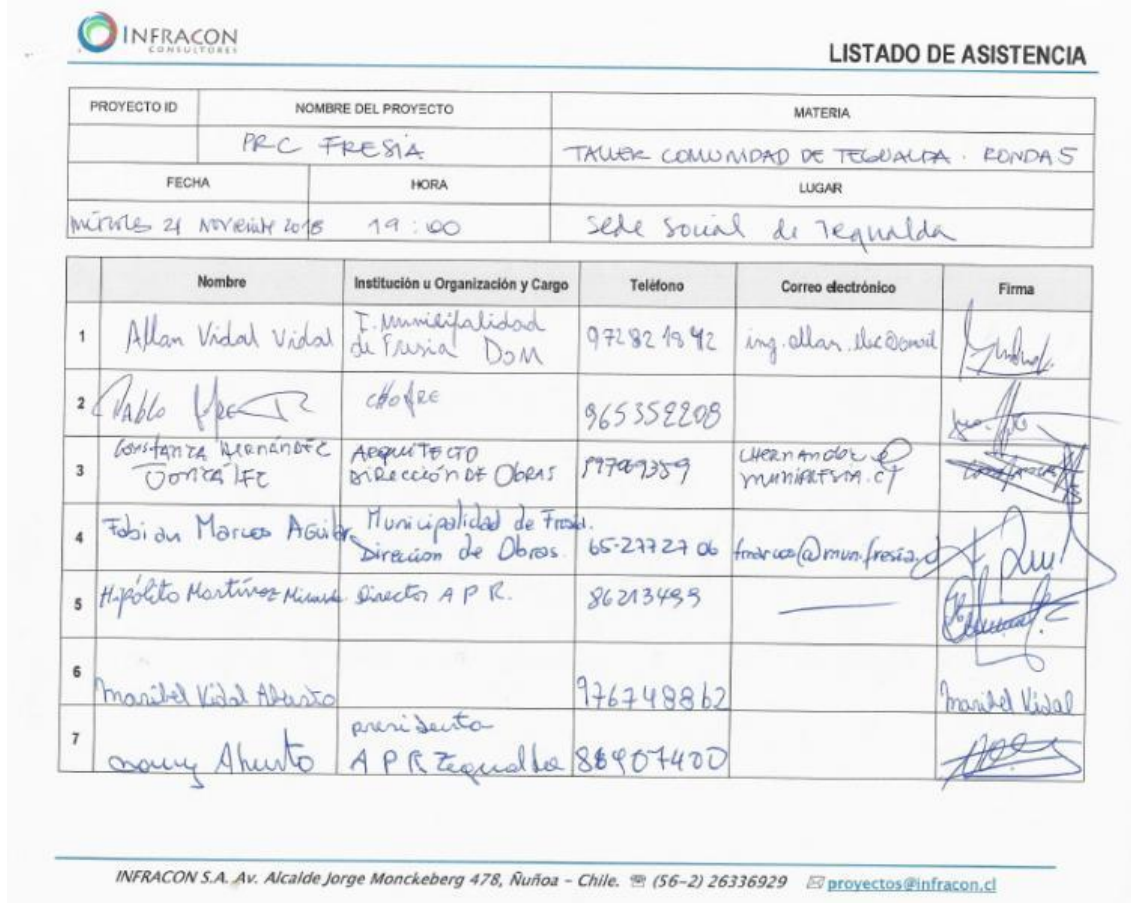 INFRACON
CONSULTORES
LISTADO DE ASISTENCIA
PROYECTO ID NOMBRE DEL PROYECTO MATERIA
PRC FRESIA TALLER COMUNIDAD DE TEGUALDA. RONDA 5
FECHA HORA LUGAR
miércoles 21 Noviembre 2018 19:00 Sede Social de Tegualda
Nombre Institución u Organización y Cargo Teléfono Correo electrónico Firma
1 Allan Vidal Vidal I. Municipalidad de Fresia DOM 972821842
2 Pablo CHOFRE 965352208
3 Constanza Hernández González ARQUITECTO DIRECCIÓN DE OBRAS
4 Fabian Marcos Aguilar Municipalidad de Fresia. Direcion de Obras. 65-2772706 fmarcos@mun.fresia.cl
5 Hipólito Martínez Director A P R. 86213499
6 Maribel Vidal Abarto 976748862 Maribel Vidal
7 presidenta A P R Tegualda 88907400
INFRACON S.A. Av. Alcalde Jorge Monckeberg 478, Ñuñoa – Chile. (56-2) 26336929 proyectos@infracon.cl